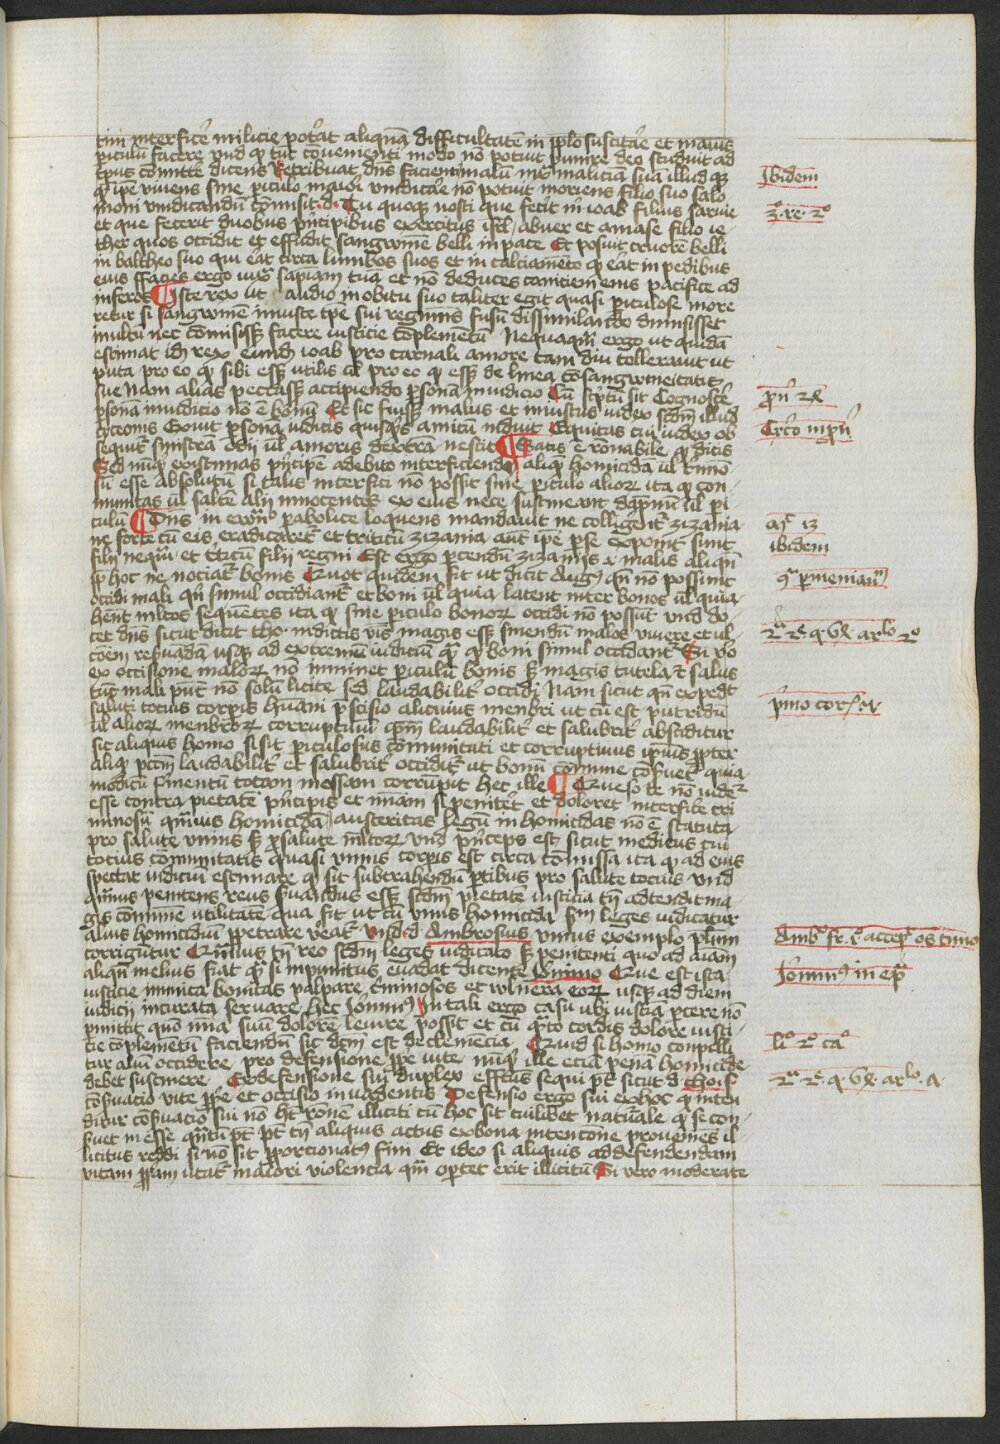 tim interficere milicie poterat aliquam difficultatem in populo suscitare et maius
periculum facere vnd quod tunc conuenienti modo non potuit punire deo studuit ad
tempus comittere dicens Retribuat dominus facienti malum iuxta maliciam suam illudque
quod ipse viuens sine periculo maiori vindicare non potuit moriens filio suo salo
moni vindicandum commisit d. Tu quoque nosti que fecit michi ioab filius saruie
et que fecerit duobus principibus exercitus israel abner et amase filio ie
ther quos occidit et effudit sangwinem belli in pace Et posuit cruorem belli
in baltheo suo qui erat circa lumbos suos et in calciamento quod erat in pedibus
eius ffacies ergo iuxta sapienciam tuam et non deduces caniciem eius pacifice ad
inferos Iste rex ut audio in obitu suo taliter egit quasi periculose more
retur si sangwinem iniuste tempore sui regiminis fusum dissimilando dimisisset
inultum nec commisisset facere iusticie complementum Nequaquam ergo ut quidam
estimat idem rex eundem ioab pro carnali amore tam diu tollerauit ut
puta pro eo quod sibi esset utilis uel pro eo quod esset de linea consangwineitatis
sue Nam alias peccasset accipiendo personam in iudicio Cum scriptum sit Cognoscere
personam in iudicio non est bonum Et sic fuisset malus et iniustus iudex secundum illud
ciceronis Exuit personam iudicis quisquis amicum induit Equitas cui iudex ob
sequitur sinistram odii uel amoris dexteram nescit Satis est racionabile quod dicitis
Sed numquid existimas principem adebito interficiendi aliquem homicidam uel crimino
sum esse absolutum si talis interfici non possit sine periculo aliorum ita quod con
munitas uel saltem alij innocentes ex eius nece sustineant dampnum uel pe
riculum Dominus in ewangelio parabolice loquens mandauit ne colligerentur zizania
ne forte cum eis eradicaretur et triticum zizania autem ipse per se exponit sunt
filii nequam et triticum filii regni Est ergo parcendum zizaniis et malis aliquando
propter hoc ne noceatur bonis Quot quidem sit ut dicit Augustinus quando non possunt
occidi mali quin simul occidantur et boni uel quia latent inter bonos uel quia
habent multos sequentes ita quod sine periculo bonorum occidi non possunt vnd do
cet dominus sicut dicit tho. in dictis verbis magis esse sinendum malos viuere et ul
cionem reseruandam usque ad extremum iudicium quam quod boni simul occidantur Cum vero
ex occisione malorum non imminet periculum bonis sed magis tutela et salus
tunc mali possunt non solum licite sed laudabiliter occidi Nam sicut quando expedit
saluti tocius corporis humani precisio alicuius menbri ut cum est putridum
uel aliorum menbrorum corruptiuum ipsum laudabiliter et salubriter absciditur
sic aliquis homo si sit periculosus communitati et corruptiuus ipsius propter
aliquod peccatum laudabiliter et salubriter occiditur ut bonum commune conseruetur quia
modicum fermentum totam massam corrumpit hec ille Queso te non uidetur
esse contra pietatem principis et nimiam si peniteret et doloret interficere cri
minosum quamuis homicidam austeritas legum in homicidas non est statuta
pro salute vnius sed pro salute multorum vnd princeps est sicut medicus cui
tocius communitatis quasi vnius corporis est circa commissa ita quod ad eius
spectat iudicium estimare quod sit subtrahendum partibus pro salute tocius vnd
quamuis penitens reus seruandus esset secundum pietatem iusticia tamen adtendit ma
gis communem utilitatem qua fit ut cum vnus homicida secundum leges iudicatur
alius homicidium perpetrare vereatur vnde d Ambrosius vnius exemplo plurimi
corriguntur Quamuis tamen reo secundum leges iudicato sed penitenti quo ad animam
aliquando melius fiat quam si impunitus euadat dicente Ieronimo Que est ista
iusticie inimica bonitas palpare criminosos et wlnera eorum usque ad diem
iudicii incurata seruare hec Ieronimus In tali ergo casu ubi iusticiam preterire non
permittit quomodo nimia suum dolorem leuire possit et cum quanto cordis dolore iusti
cie complementum faciendum sit dictum est de clemencia Quid si homo conpelli
tur alium occidere pro defensione proprie vite numquid ille eciam penam homicide
debet sustinere Ex defensione sui duplex effectus sequi potest sicut d. tho. s.
conseruacio vite proprie et occisio inuadentis Defensio ergo sui ex hoc quod inten
ditur conseruacio sui non habet racionem illiciti cum hoc sit cuilibet naturale quod se con
seruet in esse quantum potest potest tamen aliquis actus ex bona intencione proueniens il
licitus reddi si non sit proporcionatus fini Et ideo si aliquis ad defendendam
vitam propriam utitur maiori violencia quam oportet erit illicitum Si vero moderate
Ibidem
3. re. 2o
prou 28
Cicero in prou
Mt 13
ibidem
9a permenianum
2a 2e q 64 arlo 2o
primo cor. 5
Ambr super accepit os tuum
Ieronimus in epistola
li 2 ca
2a 2e q 64 arlo